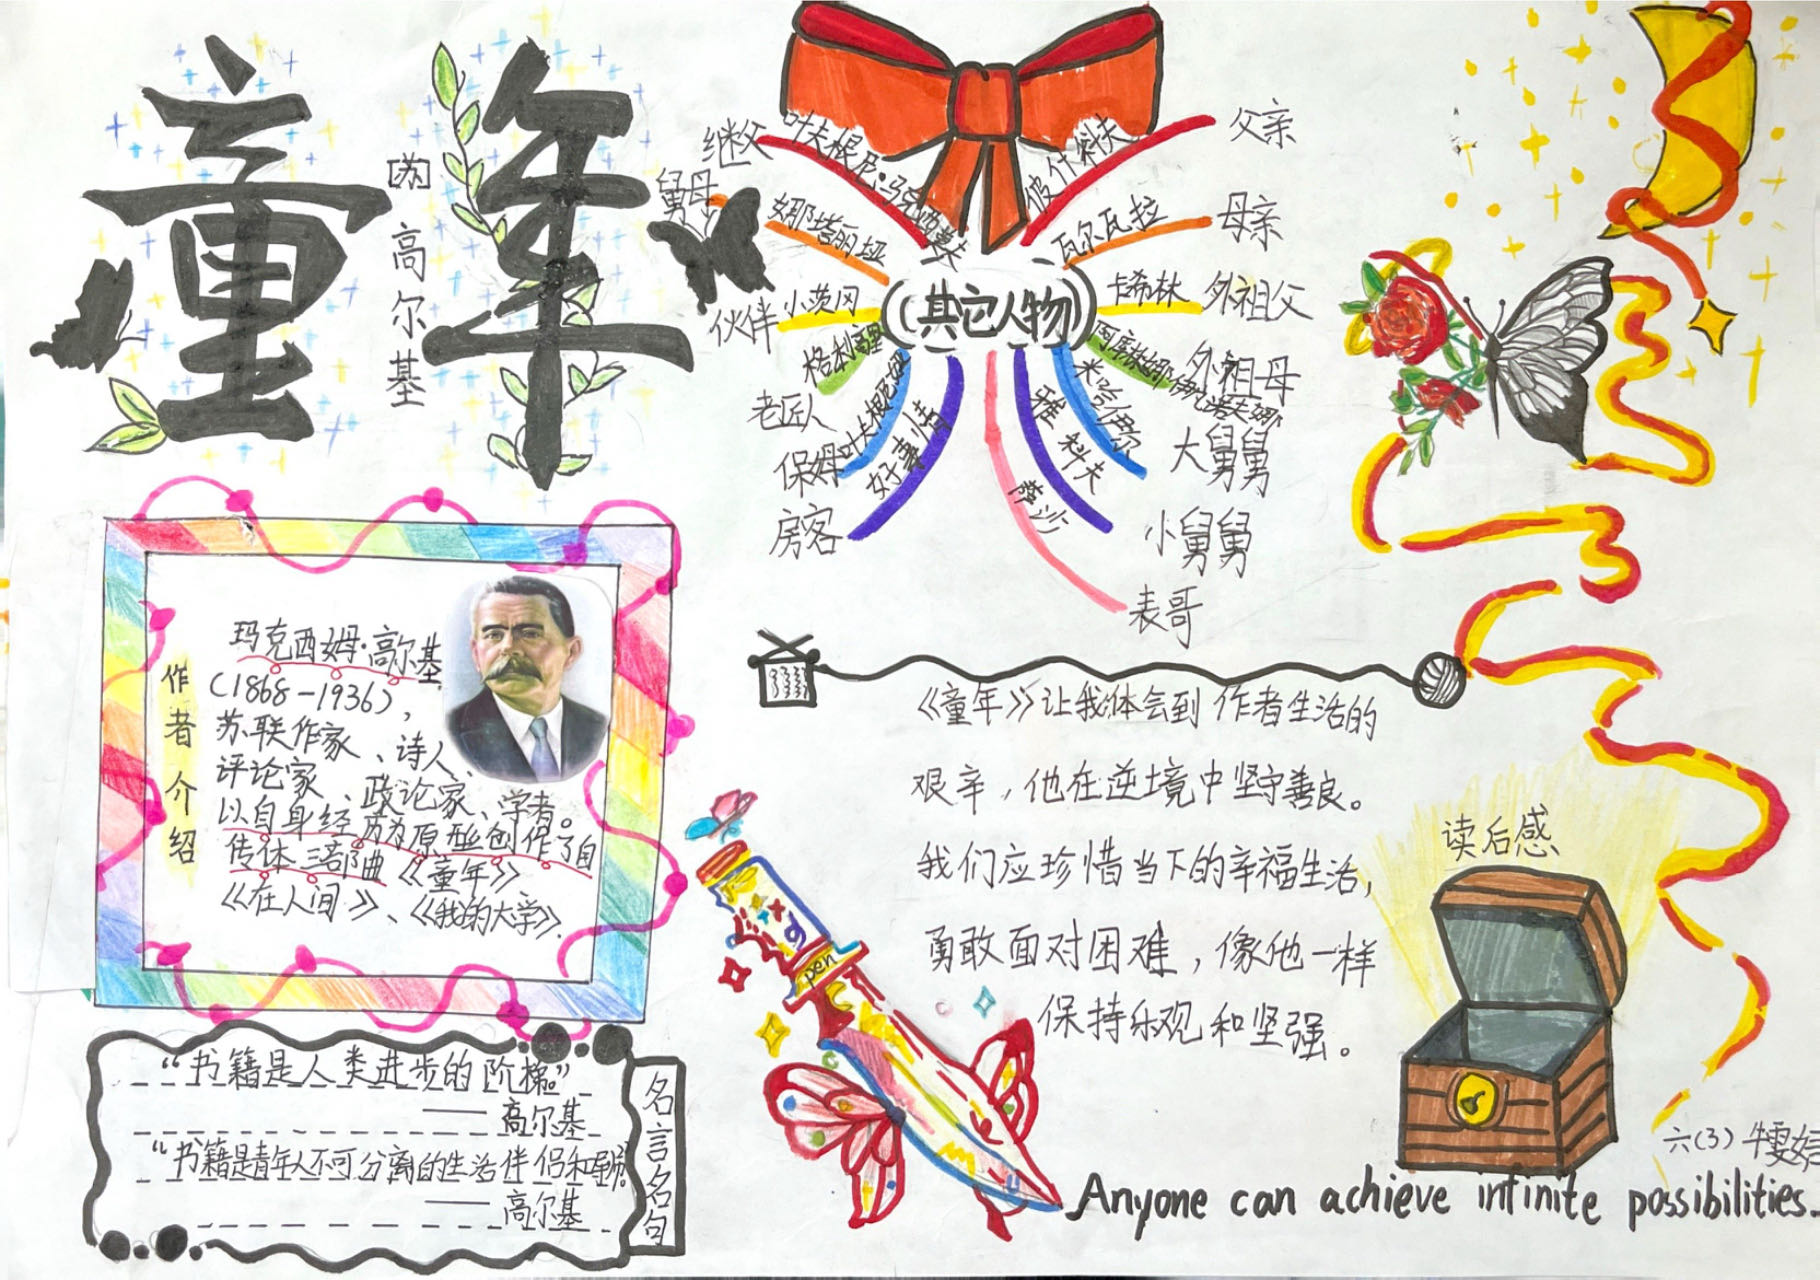 童年
[苏]
高尔基
其它人物
父亲
彼什科夫
母亲
瓦尔瓦拉
外祖父
卡希林
外祖母
大舅舅
米哈伊尔
小舅舅
雅科夫
表哥
萨沙
继父
叶夫根尼·马克西莫夫
舅母
娜塔丽娅
伙伴
小茨冈
老匠人
格利高里
保姆
叶夫根尼娅
房客
好事情
作者介绍
玛克西姆·高尔基
(1868-1936),
苏联作家、诗人、
评论家、政论家、学者。
以自身经历为原型创作了自
传体三部曲《童年》
《在人间》、《我的大学》.
“书籍是人类进步的阶梯。”
——高尔基
“书籍是青年人不可分离的生活伴侣和导师”
——高尔基
名言名句
《童年》让我体会到作者生活的
艰辛,他在逆境中坚守善良。
我们应珍惜当下的幸福生活,
勇敢面对困难,像他一样
保持乐观和坚强。
读后感
pen
六(3)
Anyone can achieve infinite possibilities.